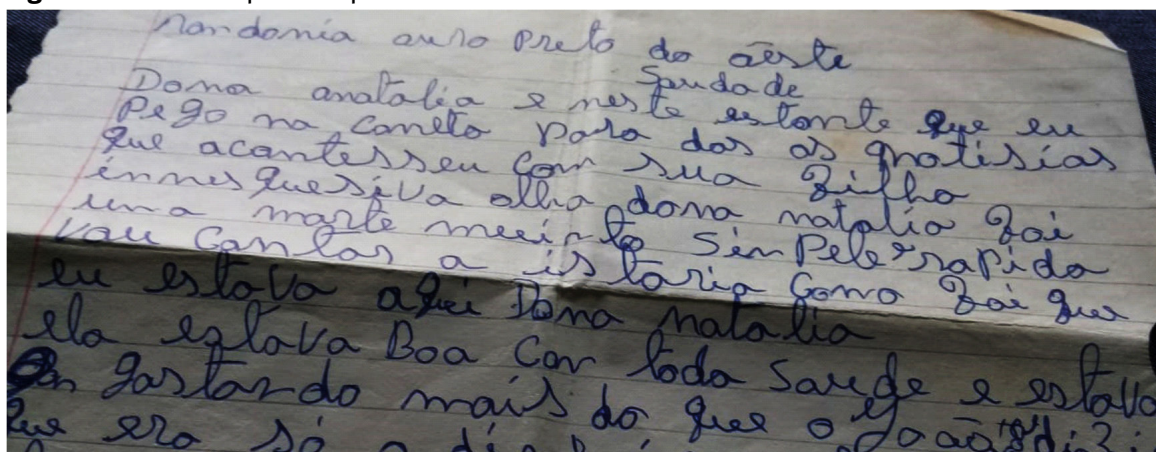 Rondonia ouro Preto do oeste
Saudade
Dona anatalia e neste estante que eu
Pego na caneta para das as notisias
que acontesseu Com sua filha
inmesquesiva olha dona natalia foi
uma morte muinto sinPele rapida
vou Contas a istoria Como foi que
eu estava aqui Dona natalia
ela estava Boa Con toda saude e estava
gastando mais do que o
que era só